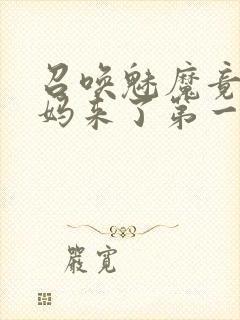 召唤魅魔竟
妈来了第一
嚴寬